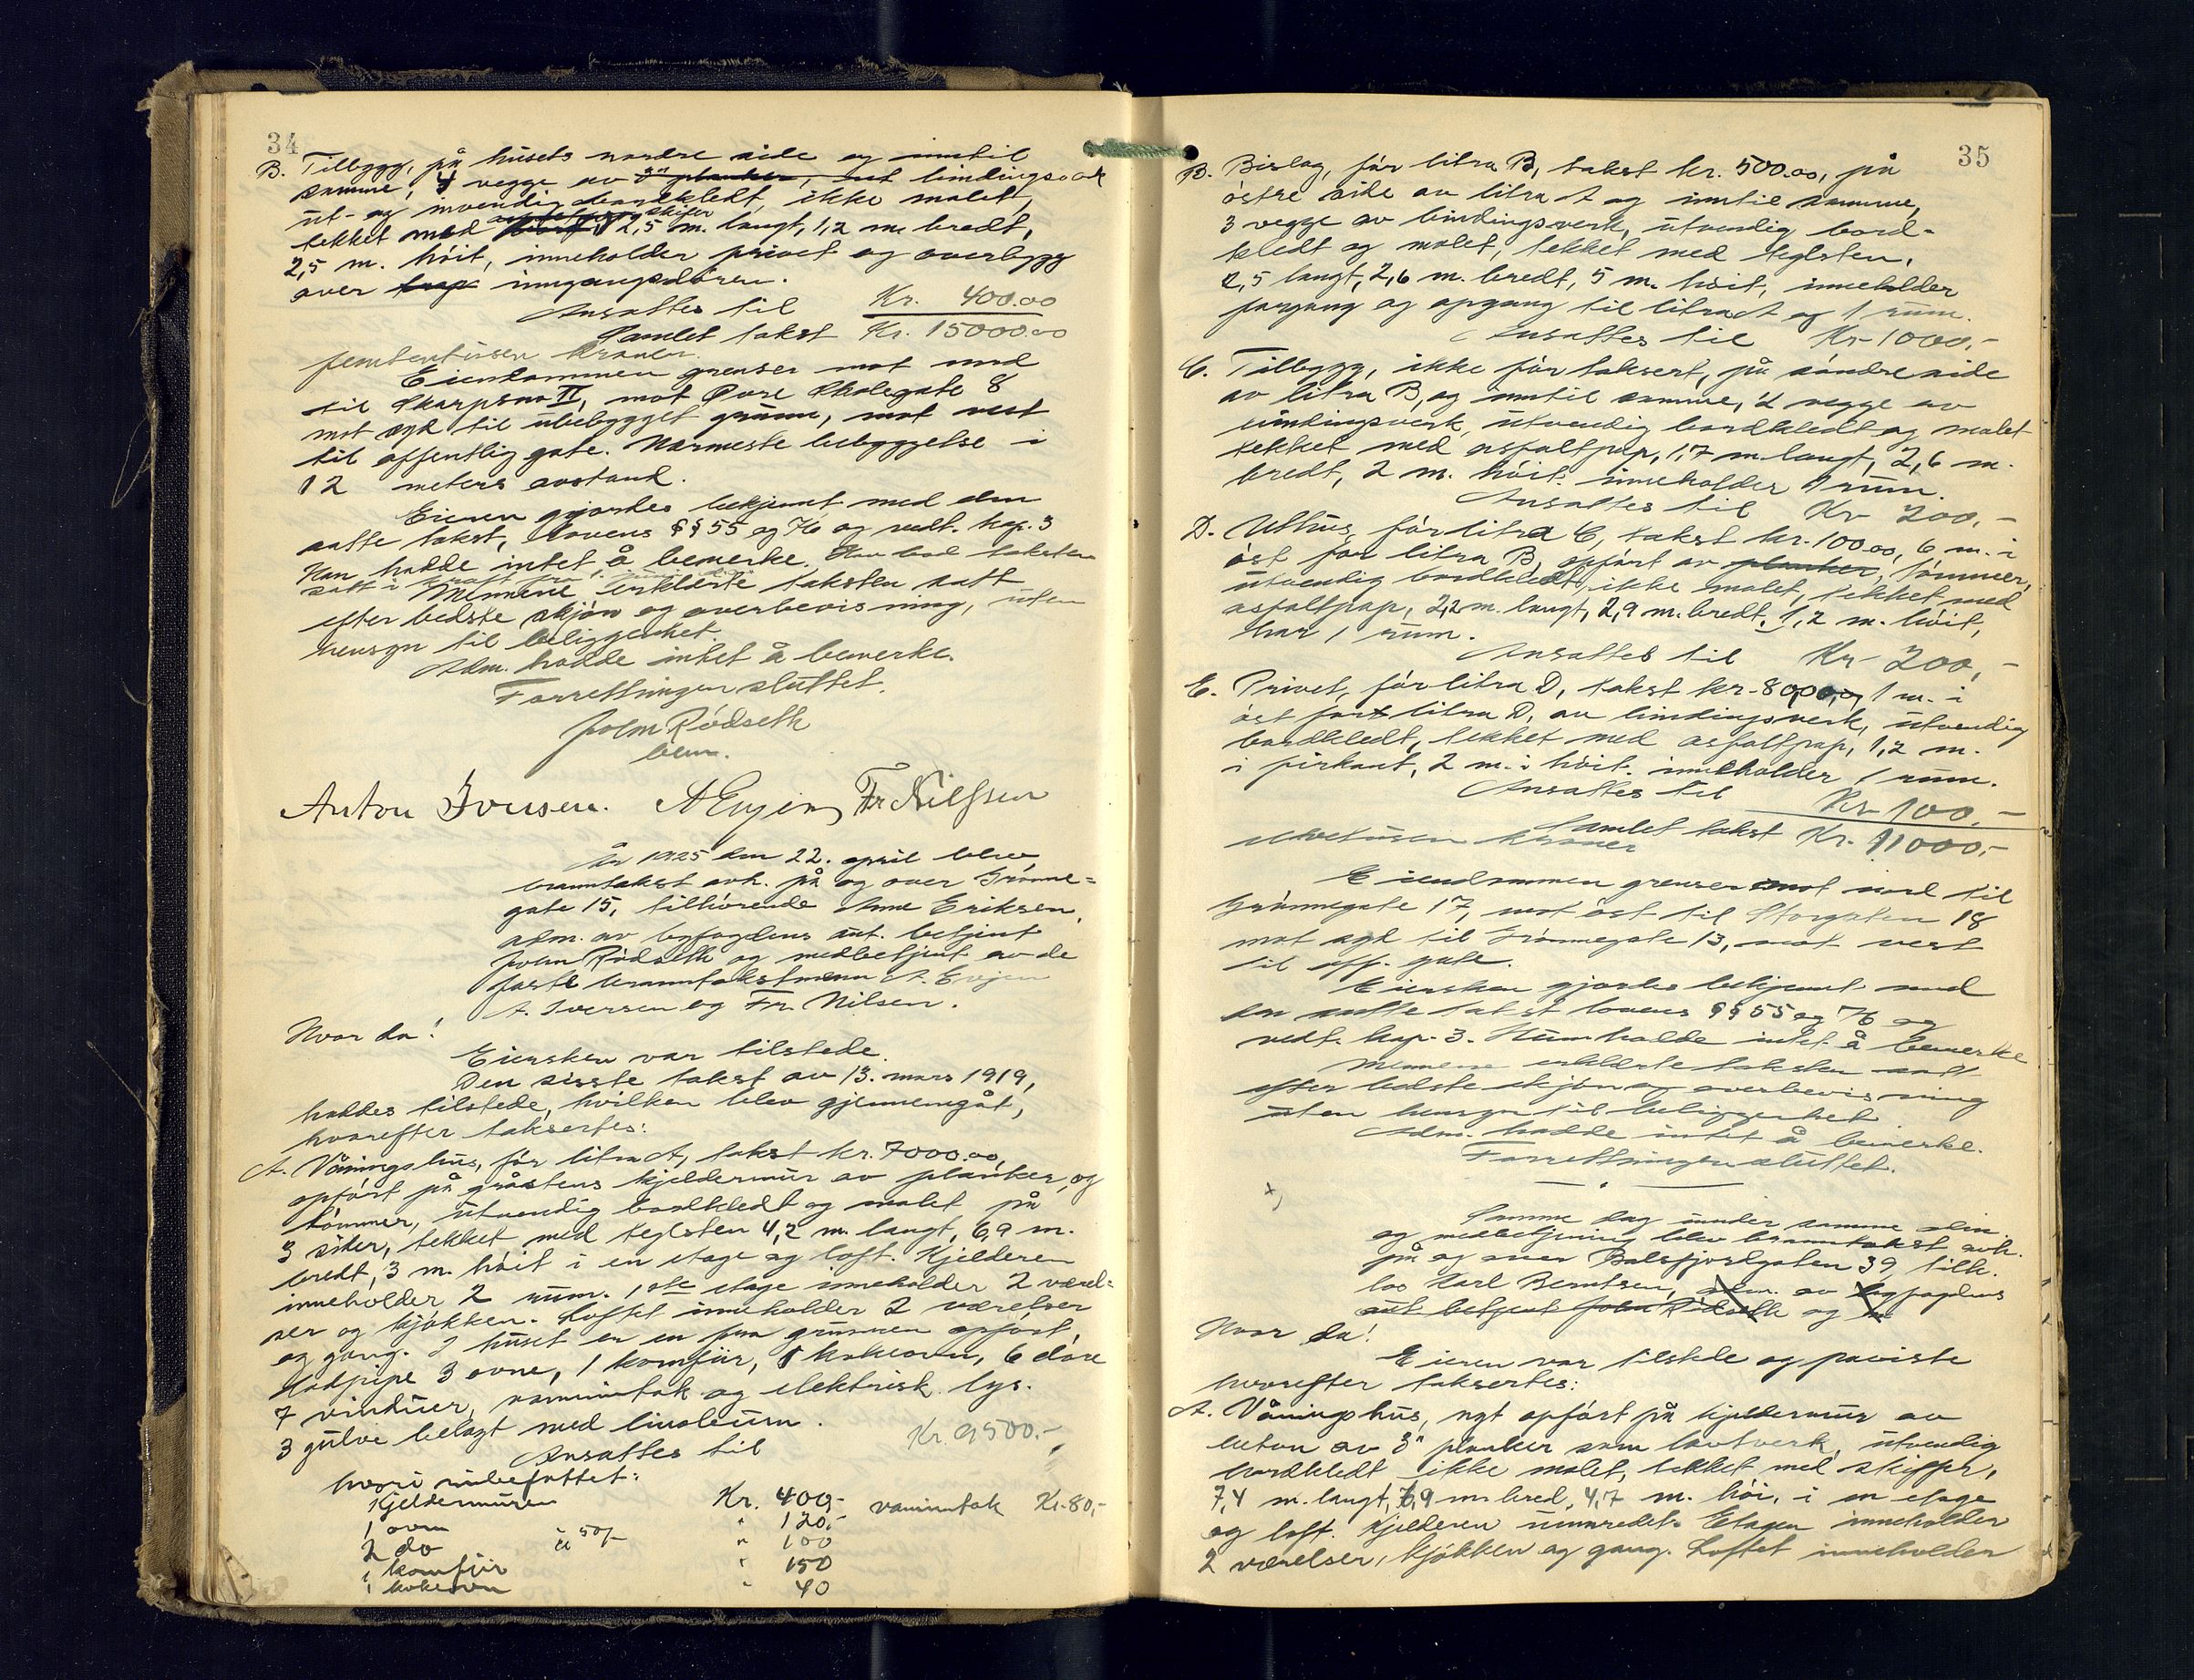 34
B. Tilbygg, på husets nordre side og inntil
samme, 4 vegge av 3" planker, ut bindingsverk
ut- og invendig bordkledt, ikke malet,
tekket med skifer 2,5 m. langt, 1,2 m. bredt,
2,5 m. höit, inneholder privet og overbygg
over trap inngangsdören.
Ansattes til Kr. 400.00
Samlet takst Kr. 15000.00
femtentusen kroner.
Eiendommen grenser mot nord
til Skarpsno II, mot Övre Skolegate 8
mot syd til ubebygget grunn, mot vest
til offentlig gate. Nærmeste bebyggelse i
12 meters avstand.
Eieren gjordes bekjent med den
satte takst, lovens §§ 55 og 76 og vedt. kap. 3
Han hadde intet å bemerke. Han bad taksten
satt i kraft fra
Mennene erklærte taksten satt
efter bedste skjön og overbevisning, uten
hensyn til beliggenhet.
Adm. hadde intet å bemerke.
Forretningen sluttet.
John Rödseth
bem.
Anton Iversen. A Evjen Fr Nilssen
År 1925 den 22. april blev
branntakst avh. på og over Grönne-
gate 15, tilhörende Anne Eriksen,
adm. av byfogdens aut. betjent
John Rödseth og medbetjent av de
faste branntakstmenn A. Evjen
A. Iversen og Fr. Nilsen.
Hvor da!
Eiersken var tilstede.
Den sisste takst av 13. mars 1919,
haddes tilstede, hvilken blev gjennemgåt,
hvorefter taksertes:
A. Våningshus, för litra A, takst kr. 7000.00,
opfört på gråstens kjeldermur av planker, og
tömmer, utvendig bordkledt og malet på
3 sider, tekket med teglsten 4,2 m. langt, 6,9 m.
bredt, 3 m. höit i en etage og loft. Kjelderen
inneholder 2 rum. 1ste etage inneholder 2 værel-
ser og kjökken. Loftet inneholder 2 værelser
og gang. I huset er en fra grunnen opfört
Rödpipe 3 ovne, 1 komfür, 1 kokeovn, 6 döre
7 vinduer, vanninntak og elektrisk lys.
3 gulve belagt med linoleum.
Ansattes til Kr. 9500.-
hvori inbefattet:
Kjeldermuren Kr. 400,- vanninntak Kr. 80,-
1 ovn " 120,-
2 do à 50/- " 100
1 komfür " 150
1 kokeovn " 40
35
B. Bislag, för litra B, takst kr. 500.00, på
östre side av litra A og inntil samme,
3 vegge av bindingsverk, utvendig bord-
kledt og malet, tekket med teglsten,
2,5 langt, 2,6 m. bredt, 5 m. höit, inneholder
forgang og opgang til litra A og 1 rum.
Ansattes til Kr 1000.-
C. Tilbygg, ikke för taksert, på söndre side
av litra B, og inntil samme, 2 vegge av
bindingsverk, utvendig bordkledt og malet
tekket med asfaltpap, 1,7 m. langt, 2,6 m.
bredt, 2 m. höit. inneholder 1 rum.
Ansattes til Kr 200.-
D. Uthus, för litra C, takst kr. 100.00, 6 m. i
öst for litra B, opfört av planker, tömmer,
utvendig bordkledt, ikke malet, tekket med
asfaltpap, 2,2 m. langt, 2,9 m. bredt, 1,2 m. höit,
har 1 rum.
Ansattes til Kr 200,-
E. Privet, för litra D, takst kr. 80,00, 1 m. i
öst for litra D, av bindingsverk, utvendig
bordkledt, tekket med asfaltpap, 1,2 m.
i firkant, 2 m. i höit. inneholder 1 rum.
Ansattes til Kr 100.-
Samlet takst Kr. 11000,-
ellevetusen kroner
Eiendommen grenser mot nord til
Grönnegate 17, mot öst til Storgaten 18
mot syd til Grönnegate 13, mot vest
til off. gate.
Eiersken gjordes bekjent med
den satte takst lovens §§ 55 og 76 og
vedt. kap. 3. Hun hadde intet å bemerke
Mennene erklærte taksten satt
efter bedste skjön og overbevisning
uten hensyn til beliggenhet
Adm. hadde intet å bemerke.
Forretningen sluttet.
Samme dag under samme adm.
og medbetjening blev branntakst avh.
på og over Balsfjordgaten 39, tilh.
los Karl Berntsen, adm. av byfogdens
aut. betjent John Rödseth og
Hvor da!
Eieren var tilstede og paviste
hvorefter taksertes:
A. Våningshus, nyt opfört på kjeldermur av
beton av 3" planker som lavtverk, utvendig
bordkledt ikke malet, tekket med skiffer,
7,4 m. langt, 6,9 m bred, 4,7 m. höi, i en etage
og loft. Kjelderen uinnredet. Etagen inneholder
2 værelser, kjökken og gang. Loftet inneholder